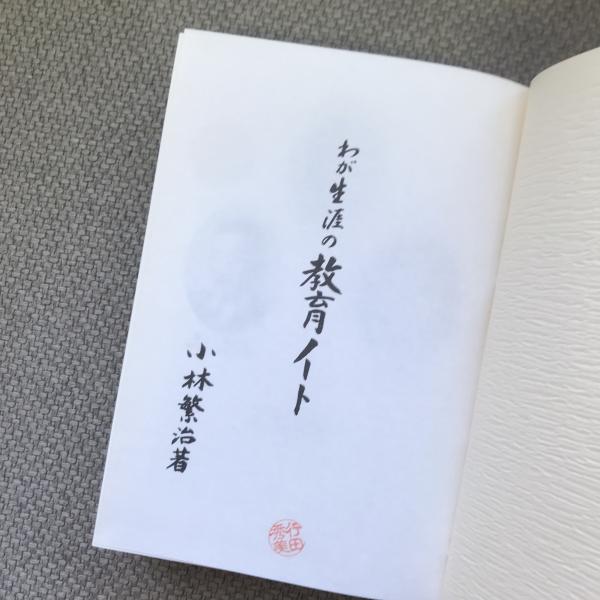 わが生涯の教育ノート
小林繁治著
行田